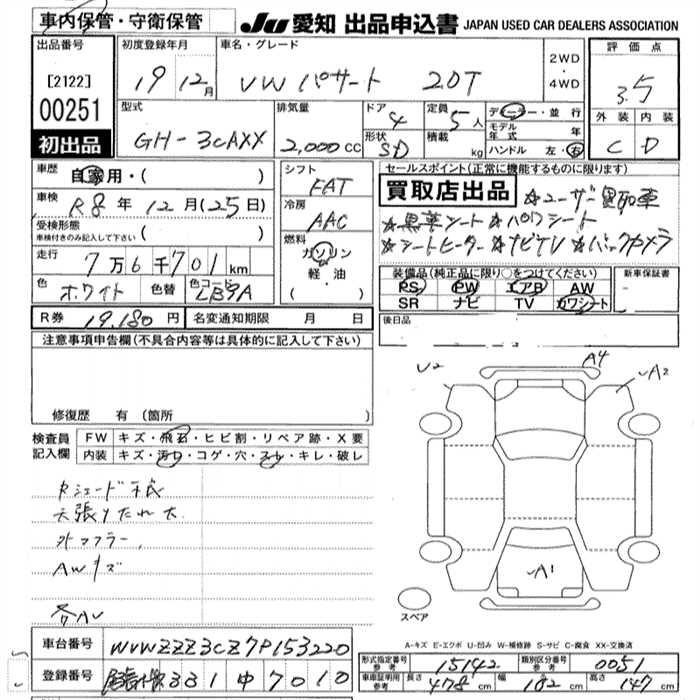 車内保管・守衛保管
JU 愛知 出品申込書 JAPAN USED CAR DEALERS ASSOCIATION
出品番号 初度登録年月 車名・グレード 2WD・4WD 評価点
[2122] 19 12月 VW パサート 2.0T 3.5
00251 型式 排気量 ドア 4 定員 5人 ディーラー・並行 外装 内装
初出品 GH-3CAXX 2,000cc 形状 SD 積載 kg モデル年式 年 C D
ハンドル 左・右
車歴 自家用・( ) シフト FAT セールスポイント(正常に機能するものに限ります)
車検 R8年 12月(25日) 冷房 AAC 買取店出品 ☆ユーザー買取車
受検形態 車検付きのみ記入して下さい ( ) ☆黒革シート ☆パワーシート
走行 7万6千701km 燃料 ガソリン 軽・油 ・( ) ☆シートヒーター ☆ナビTV ☆バックカメラ
色 ホワイト 色替 色コード LB9A 装備品(純正品に限り○をつけてください) 新車保証書
PS PW エアB AW
R券 19,180円 名変通知期限 月 日 SR ナビ TV カワシート
後日品
注意事項申告欄(不具合内容等は具体的に記入して下さい)
修復歴 有 (箇所
U2 A4 A2
検査員記入欄 FW キズ・飛石・ヒビ割・リペア跡・X要
内装 キズ・汚れ・コゲ・穴・スレ・キレ・破レ
天張りたれ大
外マフラー
AWキズ
A1
各AU
スペア
A-キズ E-エクボ U-凹み W-補修跡 S-サビ C-腐食 XX-交換済
車台番号 WVWZZZ3CZ7P153220
形式指定番号 参考 15142 類別区分番号 参考 0051
登録番号 331 7010
車庫証明用 参考 長さ 478cm 幅 182cm 高さ 147cm